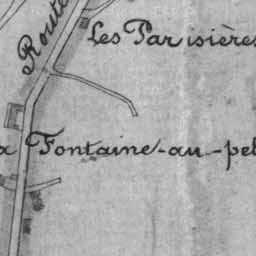 Route
Les Parisières
a Fontaine-au-pel